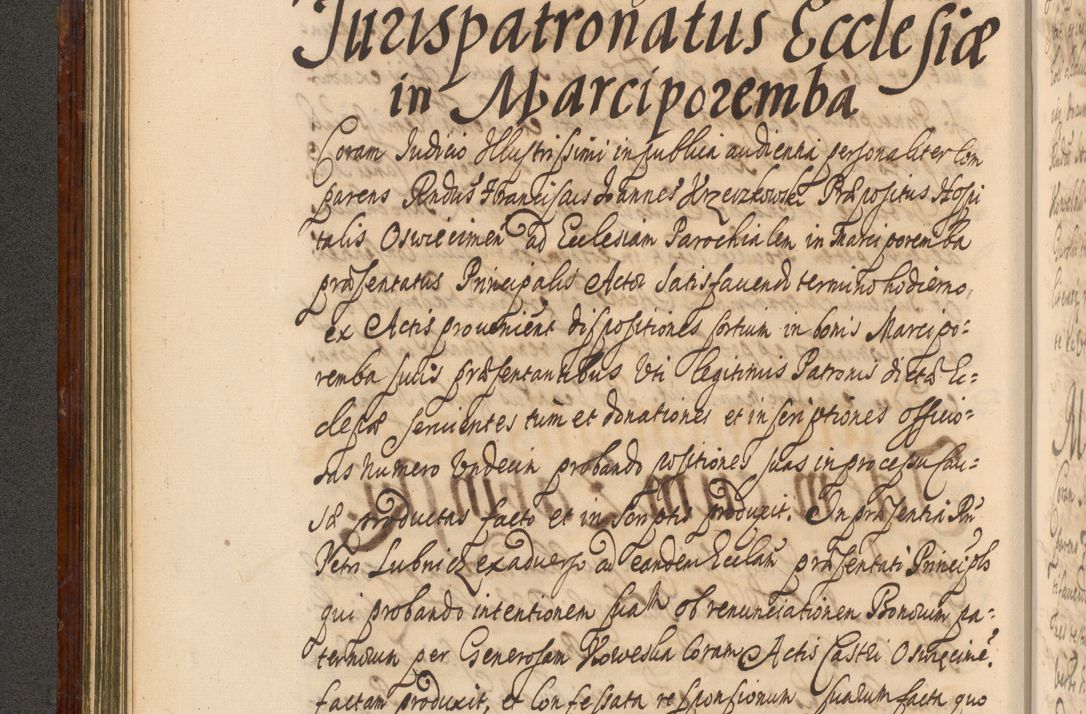 Jurispatronatus Ecclesiæ
in Marciporemba
Coram Judicio Illustrissimi in publica audientia personaliter Com
parens Rndus Franciscus Joannes Krzeczkowski Præpositus Hospi
talis Oswiecimen ad Ecclesiam Parochialem in Marciporemba
præsentatus Principalis Actor satisfaciendo termino hodierno,
ex Actis provenient dispositiones sortium in bonis Marcipo:
remba suis præsentantibus Uti legitimis Patronis dictæ Ec:
clesiæ servientes tum et donationes et inscriptiones officio:
sas numero Undecim probando positiones suas in processu cau:
sæ productas facto et in scriptis produxit. In præsentia Rndi
Petri Lubnicz ex adverso ad eandem Ecclam præsentati Principls
qui probando intentionem suam ob renunciationem Bonorum pa:
ternorum per Generosam Coram Actis Castri Oswiecime.
factam produxit, et Confessata responsionum suarum facta quo